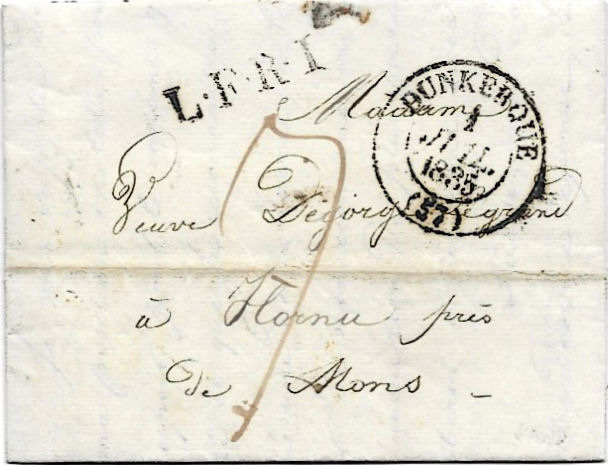 L.F.R.I
DUNKERQUE
1
JUIL.
1835
(57)
Madame
Veuve Degorge Legrand
à Hornu près
de Mons
7